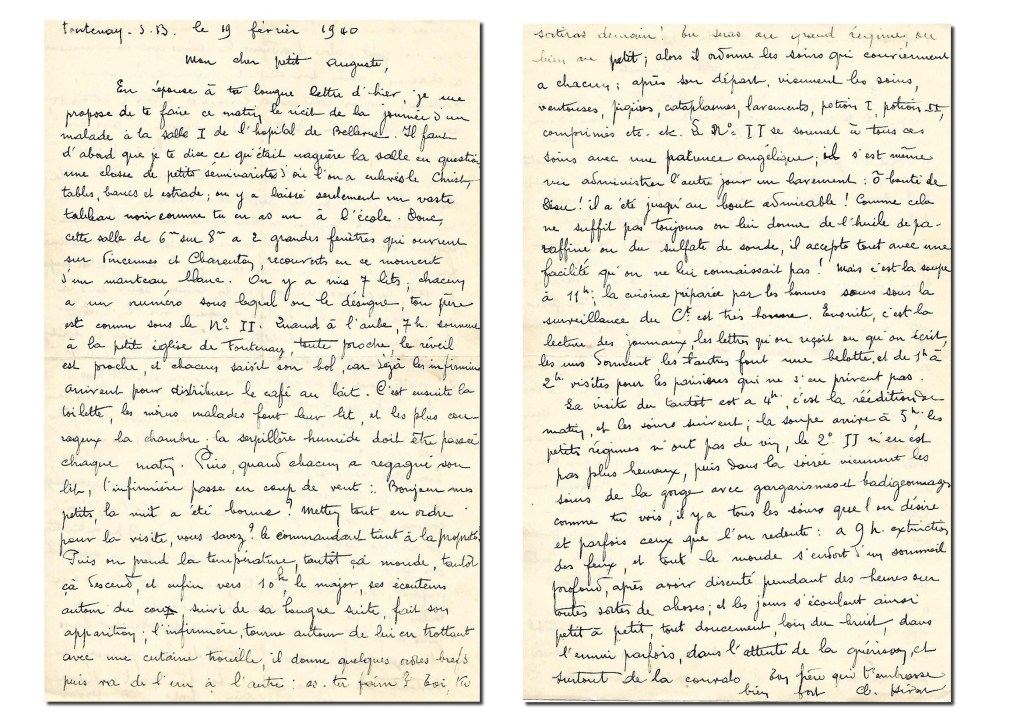 Fontenay. S. B. le 19 février 1940
Mon cher petit Auguste,
En réponse à ta longue lettre d'hier, je me
propose de te faire ce matin le récit de la journée d'un
malade à la salle I de l'hopital de Bellevue. Il faut
d'abord que je te dise ce qu'était naguère la salle en question
une classe de petits séminaristes d'où l'on a enlevés le Christ,
tables, bancs et estrade; on y a laissé seulement un vaste
tableau noir comme tu en as un à l'école. Donc,
cette salle de 6m sur 8m a 2 grandes fenêtres qui ouvrent
sur Vincennes et Charenton, recouverts en ce moment
d'un manteau blanc. On y a mis 7 lits, chacun
a un numéro sous lequel on le désigne, ton père
est connu sous le No II. Quand à l'aube, 7h. sonnent
à la petite église de Fontenay, toute proche le réveil
est proche, et chacun saisit son bol, car déjà les infirmiers
arrivent pour distribuer le café au lait. C'est ensuite la
toilette, les moins malades font leur lit, et les plus cou-
rageux la chambre; la serpillère humide doit être passée
chaque matin. Puis, quand chacun a regagné son
lit, l'infirmière passe en coup de vent :. Bonjour mes
petits, la nuit a été bonne? Mettez tout en ordre
pour la visite, vous savez? le commandant tient à la propreté.
Puis on prend la température, tantôt çà monte, tantôt
çà descend, et enfin vers 10h, le major, ses écouteurs
autour du cou suivi de sa longue suite, fait son
apparition; l'infirmière, tourne autour de lui en trottant
avec une certaine trouille, il donne quelques ordres brefs
puis va de l'un à l'autre : as. tu faim? Toi, tu
sortiras demain! tu seras au grand régime, ou
bien au petit; alors il ordonne les soins qui conviennent
a chacun; après son départ, viennent les soins,
ventouses, piqûres, cataplasmes, lavements, potion I, potion II,
comprimés etc. etc. Le No II se soumet à tous ces
soins avec une patience angélique; il s'est même
vu administrer l'autre jour un lavement : ô bonté de
Dieu! il a été jusqu'au bout admirable! Comme cela
ne suffit pas toujours on lui donne de l'huile de pa-
raffine ou du sulfate de soude, il accepte tout avec une
facilité qu'on ne lui connaissait pas! Mais c'est la soupe
à 11h; la cuisine préparée par les bonnes sœurs sous la
surveillance du Ct. est très bonne. Ensuite, c'est la
lecture des journaux, les lettres qu'on reçoit ou qu'on écrit,
les uns dorment les autres font une belotte, et de 1h à
2h. visites pour les parisiens qui ne s'en privent pas.
La visite du tantôt est a 4h, c'est la réédition du
matin, et les soins suivent; la soupe arrive à 5h, les
petits régimes n'ont pas de vin, le 2o II n'en est
pas plus heureux, puis dans la soirée viennent les
soins de la gorge avec gargarismes et badigeonnages
comme tu vois, il y a tous les soins que l'on désire
et parfois ceux que l'on redoute : a 9 h. extinction
des feux, et tout le monde s'endort d'un sommeil
profond, après avoir discuté pendant des heures sur
toutes sortes de choses; et les jours s'écoulent ainsi
petit à petit, tout doucement, loin du bruit, dans
l'ennui parfois, dans l'attente de la guérison, et
surtout de la convalo Ton père qui t'embrasse
bien fort Ch.